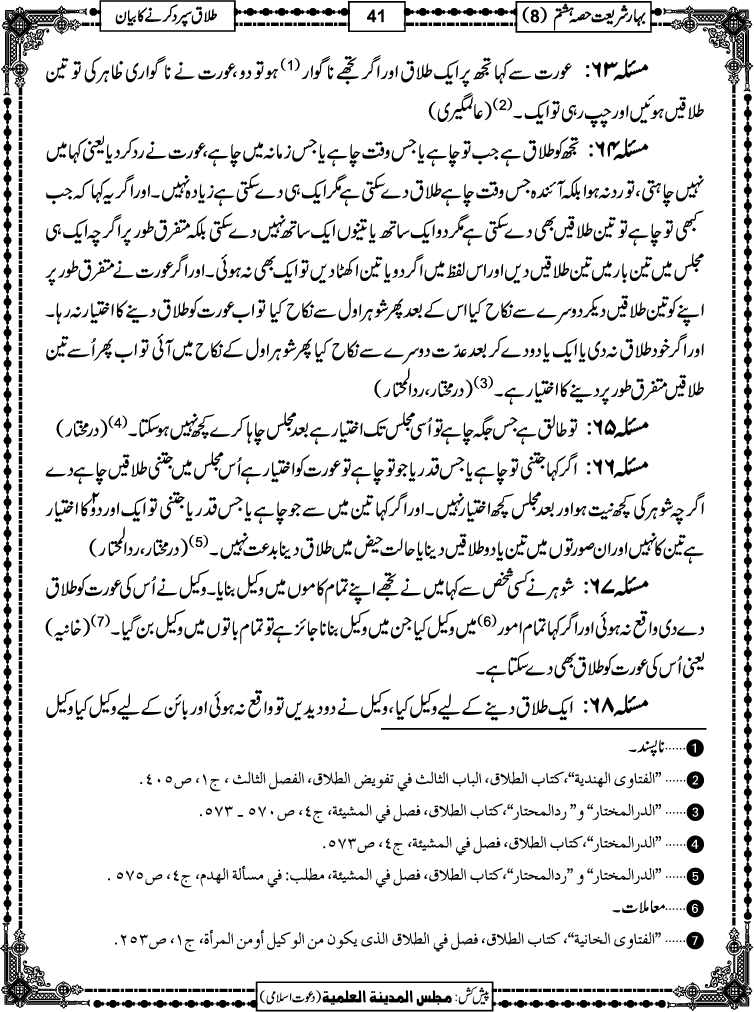 بہار شریعت حصہ ہشتم (8)
41
طلاق سپرد کرنے کا بیان
مسئلہ ۶۳: عورت سے کہا تجھ پر ایک طلاق اور اگر تجھے ناگوار (1) ہو تو دو، عورت نے ناگواری ظاہر کی تو تین
طلاقیں ہوئیں اور چپ رہی تو ایک۔ (2) (عالمگیری)
مسئلہ ۶۴: تجھ کو طلاق ہے جب تو چاہے یا جس وقت چاہے یا جس زمانہ میں چاہے، عورت نے رد کر دیا یعنی کہا میں
نہیں چاہتی، تو رد نہ ہوا بلکہ آئندہ جس وقت چاہے طلاق دے سکتی ہے مگر ایک ہی دے سکتی ہے زیادہ نہیں۔ اور اگر یہ کہا کہ جب
کبھی تو چاہے تو تین طلاقیں بھی دے سکتی ہے مگر دو ایک ساتھ یا تینوں ایک ساتھ نہیں دے سکتی بلکہ متفرق طور پر اگرچہ ایک ہی
مجلس میں تین بار میں تین طلاقیں دیں اور اس لفظ میں اگر دو یا تین اکھٹا دیں تو ایک بھی نہ ہوئی۔ اور اگر عورت نے متفرق طور پر
اپنے کو تین طلاقیں دیکر دوسرے سے نکاح کیا اس کے بعد پھر شوہر اول سے نکاح کیا تو اب عورت کو طلاق دینے کا اختیار نہ رہا۔
اور اگر خود طلاق نہ دی یا ایک یا دو دے کر بعد عدّت دوسرے سے نکاح کیا پھر شوہر اول کے نکاح میں آئی تو اب پھر اُسے تین
طلاقیں متفرق طور پر دینے کا اختیار ہے۔ (3) (درمختار، ردالمحتار)
مسئلہ ۶۵: تو طالق ہے جس جگہ چاہے تو اُسی مجلس تک اختیار ہے بعد مجلس چاہا کرے کچھ نہیں ہو سکتا۔ (4) (درمختار)
مسئلہ ۶۶: اگر کہا جتنی تو چاہے یا جس قدر یا جو تو چاہے تو عورت کو اختیار ہے اُس مجلس میں جتنی طلاقیں چاہے دے
اگرچہ شوہر کی کچھ نیت ہو اور بعد مجلس کچھ اختیار نہیں۔ اور اگر کہا تین میں سے جو چاہے یا جس قدر یا جتنی تو ایک اور دو کا اختیار
ہے تین کا نہیں اور ان صورتوں میں تین یا دو طلاقیں دینا یا حالت حیض میں طلاق دینا بدعت نہیں۔ (5) (درمختار، ردالمحتار)
مسئلہ ۶۷: شوہر نے کسی شخص سے کہا میں نے تجھے اپنے تمام کاموں میں وکیل بنایا۔ وکیل نے اُس کی عورت کو طلاق
دے دی واقع نہ ہوئی اور اگر کہا تمام امور (6) میں وکیل کیا جن میں وکیل بنانا جائز ہے تو تمام باتوں میں وکیل بن گیا۔ (7) (خانیہ)
یعنی اُس کی عورت کو طلاق بھی دے سکتا ہے۔
مسئلہ ۶۸: ایک طلاق دینے کے لیے وکیل کیا، وکیل نے دو دیدیں تو واقع نہ ہوئی اور بائن کے لیے وکیل کیا وکیل
1 ......ناپسند۔
2 ...... "الفتاوی الھندیۃ"، کتاب الطلاق، الباب الثالث في تفویض الطلاق، الفصل الثالث ، ج۱، ص۴۰۵.
3 ...... "الدرالمختار" و" ردالمحتار"، کتاب الطلاق، فصل في المشیئۃ، ج۴، ص۵۷۰ ـ ۵۷۳.
4 ...... "الدرالمختار"، کتاب الطلاق، فصل في المشیئۃ، ج۴، ص۵۷۳.
5 ...... "الدرالمختار" و "ردالمحتار"، کتاب الطلاق، فصل في المشیئۃ، مطلب: في مسألۃ الھدم، ج۴، ص۵۷۵ .
6 ......معاملات۔
7 ...... "الفتاوی الخانیۃ"، کتاب الطلاق، فصل في الطلاق الذی یکون من الوکیل أومن المرأۃ، ج۱، ص۲۵۳.
پیش کش: مجلس المدینۃ العلمیۃ (دعوت اسلامی)